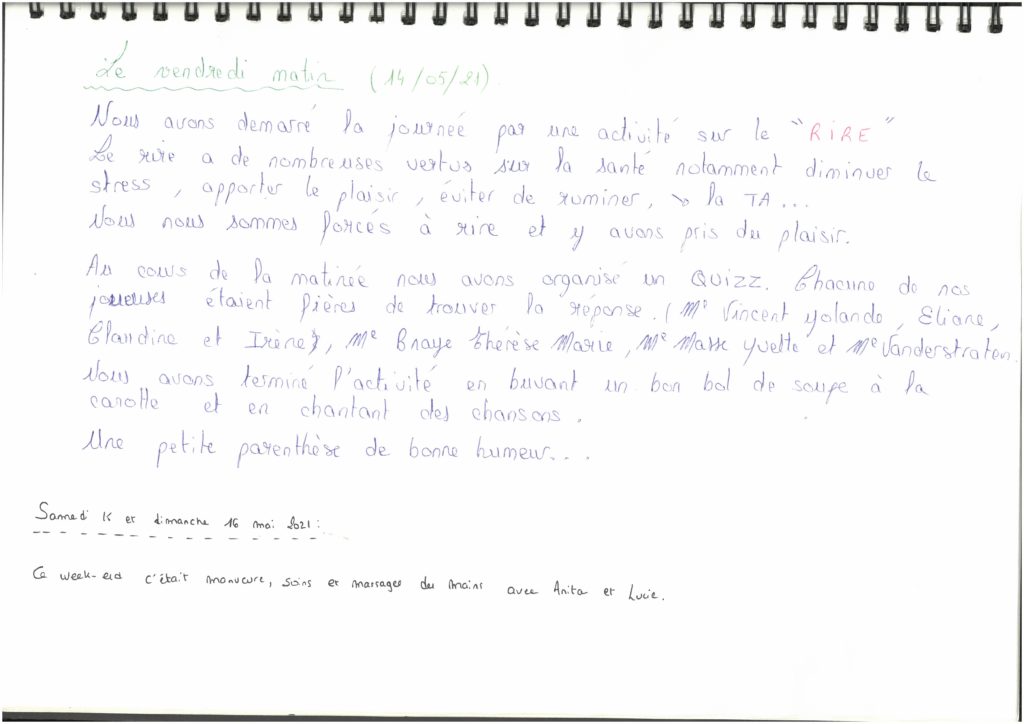 Le vendredi matin (14/05/21).
Nous avons demarré la journeé par une activité sur le "RIRE"
Le rire a de nombreuses vertus sur la santé notamment diminuer le
stress, apporter le plaisir, éviter de ruminer, ↘ la TA...
Nous nous sommes forcés à rire et y avons pris du plaisir.
Au cours de la matinée nous avons organisé un QUIZZ. Chacune de nos
joueuses étaient fières de trouver la réponse. (Me Vincent Yolande, Eliane,
Claudine et Irène), Me Braye Thérèse Marie, Me Masse Yvette et Me Vanderstraten.
Nous avons terminé l'activité en buvant un bon bol de soupe à la
carotte et en chantant des chansons.
Une petite parenthèse de bonne humeur...
Samedi 15 et dimanche 16 mai 2021:
Ce week-end c'était manucure, soins et massages des mains avec Anita et Lucie.